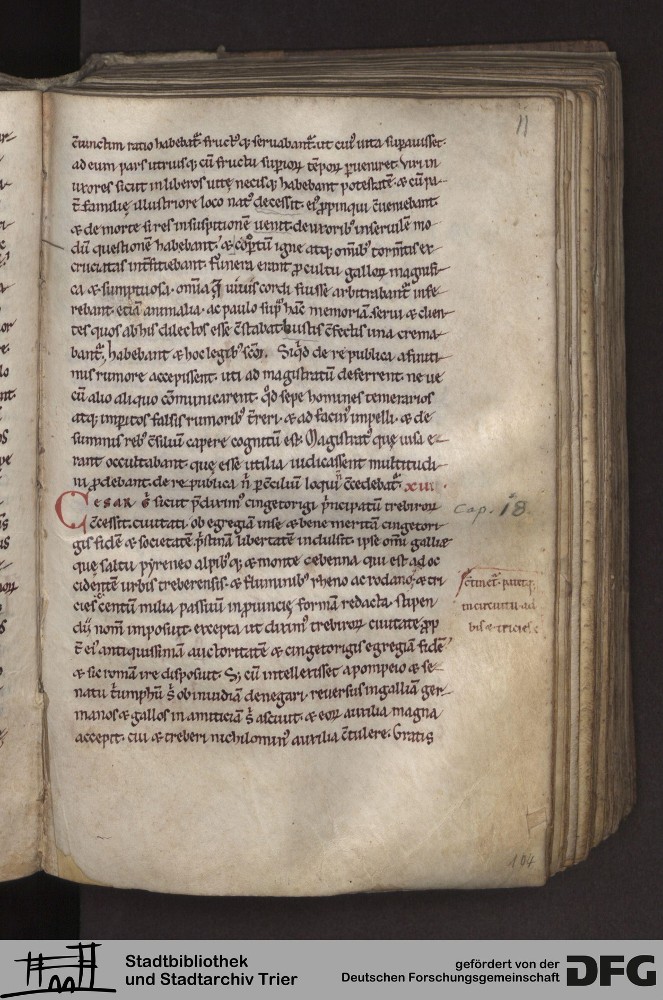 11
c̄iunctim ratio habebat᷑. fruct᷒q; seruabant᷑. ut cui᷒ uita sup̱auisset.
ad eum pars utriusq; cū fructu superioꝝ tēpoꝝ ꝑueniret. Viri in
uxores sicut in liberos uitę necisq; habebant potestatē. & cū pa-
t̄ familię illustriore loco nat᷒ decessit. ei᷒ ꝓpinqui c̄ueniebant
& de morte si res in suspitionē uenit. de uxorib᷒ in seruilē mo
dū questionē habebant. & cōptū igne atq; omīb᷒ torm̄tis ex-
cruciatas int̄fitiebant. Funera erant ꝓ cultu galloꝝ magnifi-
ca & sumptuosa. omīa q̄ uiuis cordi fuisse arbitrabant᷑ infe-
rebant. etiā animalia. ac paulo sup̱ hāc memoriā serui & clien-
tes quos ab his dilectos esse c̄stabat. bustis c̄fectis una crema-
bant᷑. habebant & hoc legib᷒ sc̄m. Siq̇d de re publica a finiti-
mis rumore accepissent. uti ad magistratū deferrent. ne ue
cū alio aliquo cōmunicarent. q̇d sepe homines temerarios
atq; imperitos falsis rumorib᷒ t̄reri. & ad facin᷒ impelli. & de
summis reb᷒ c̄siliū capere cognitū est. Magistrat᷒ quę uisa e-
rant occultabant. quę esse utilia iudicassent multitudi-
ni ꝓdebant. de re publica n̄ ꝑ c̄ciliū loqui c̄cedebat᷑.
CESAR ḡ sicut p̄dixim᷒ cingetorigi p̄ncipatū treberoꝝ
c̄cessit. ciuitati ob egregiā in se & bene meritā cingetori-
gis fidē & societatē. p̄stinā libertatē indulsit. ipse omī gallia
que saltu pyreneo alpib᷒q; & monte cebenna qui est ad oc
cidentē urbis treberensis. & fluminib᷒ rheno ac rodano. & tri
cies centū milia passuū in ꝓuincię formā redacta. stipen
dii nom̄ imposuit. excepta ut dixim᷒ treberoꝝ ciuitate. ꝓp
t̄ ei᷒ antiquissimā auctoritatē & cingetorigis egregiā fidē
& sic romā ire disposuit. S; cū intellexisset a pompeio & se-
natu t̄umphū ḡ ob inuidiā denegari. reuersus in galliā ger-
manos & gallos in amiticiā ḡ asciuit. & eoꝝ auxilia magna
accepit. cui & treberi nichilomin᷒ auxilia c̄tulere. Gratis
cap. 18.
in circuitu ad
bis & tricies c
104
Stadtbibliothek
und Stadtarchiv Trier
gefördert von der
Deutschen Forschungsgemeinschaft
DFG